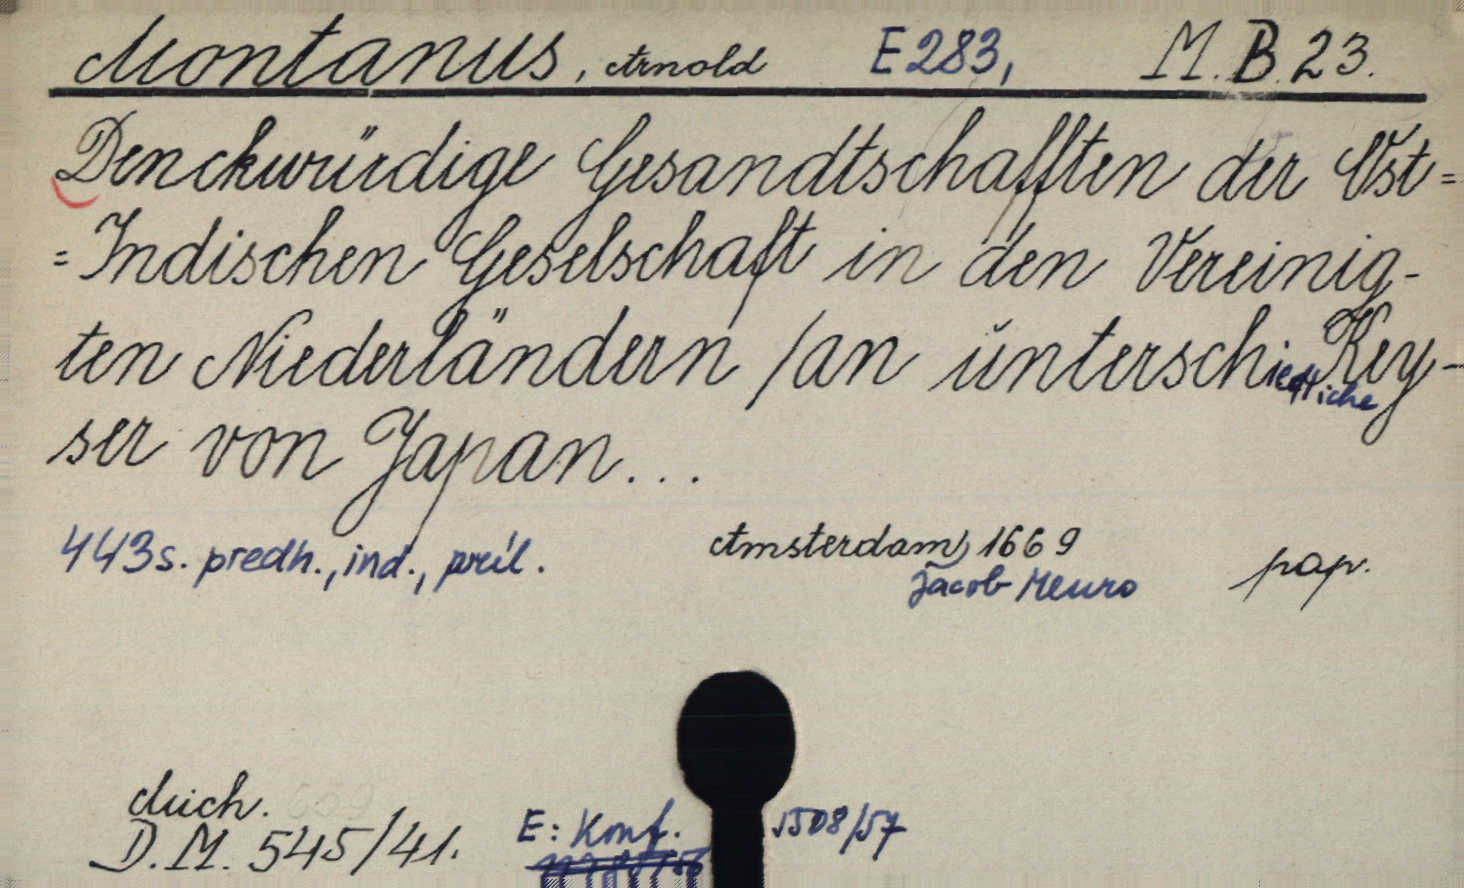 Montanus, Arnold E283, M.B.23.
Denckwürdige Gesandtschafften der Ost=
=Indischen Geselschaft in den Vereinig-
ten Niederländern /an unterschiedtliche Key-
ser von Japan...
443s. predh., ind., príl. Amsterdam, 1669
Jacob Meuro pap.
duch.
D.M. 545/41. E: Konf. 1508/57